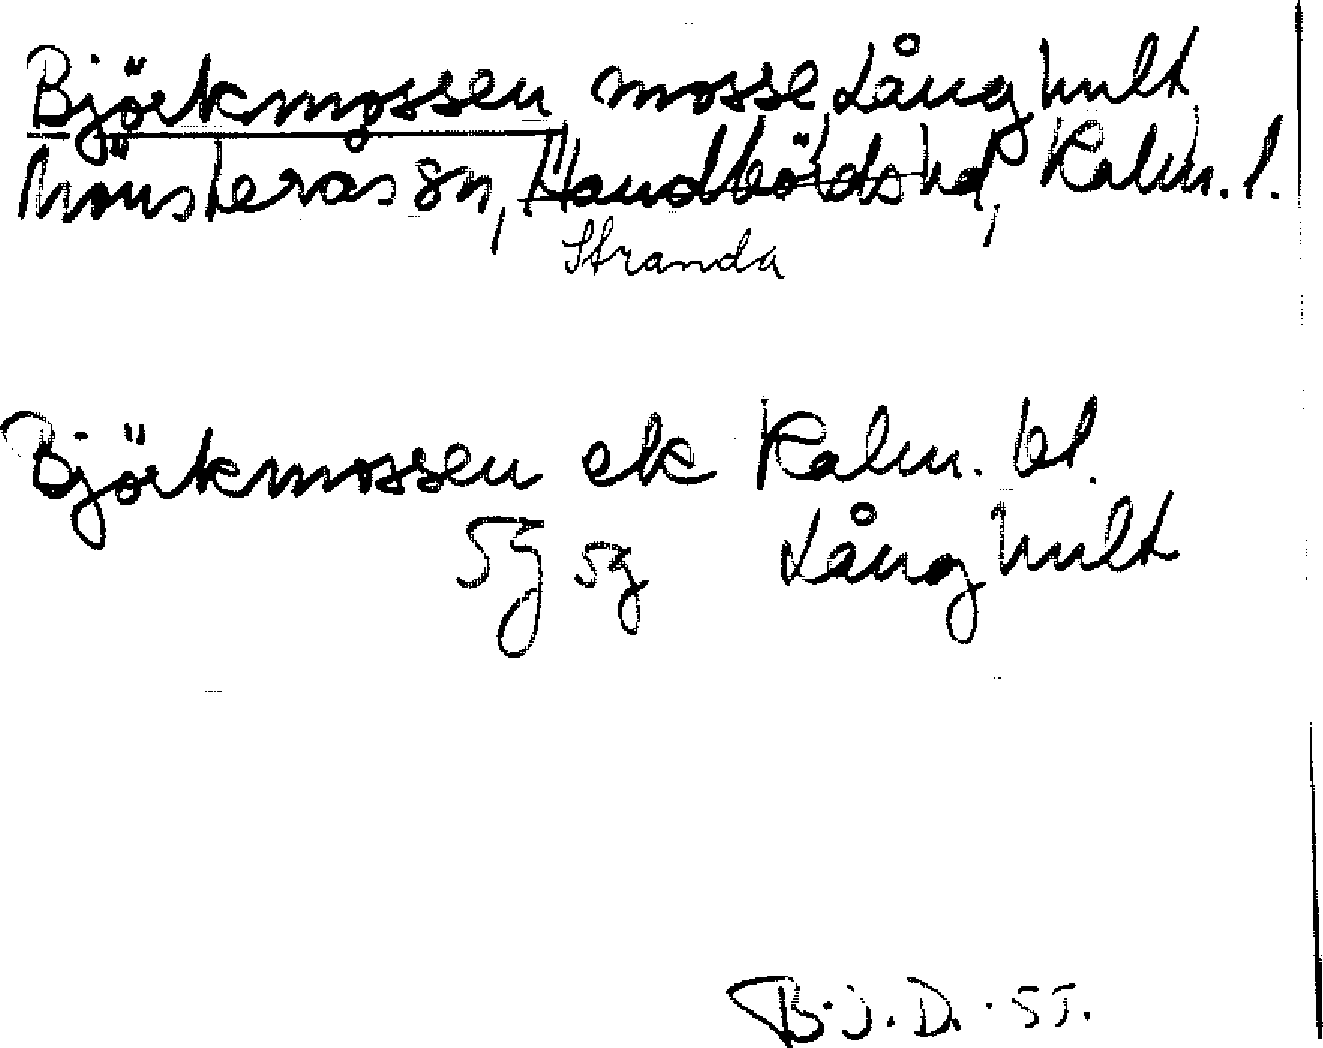 Björkmossen mosse Långhult
Mönsterås sn, Handbörds hd, Kalm. l.
Stranda
Björkmossen ek Kalm. bl.
5g 5g Långhult
B.J.D. 55.